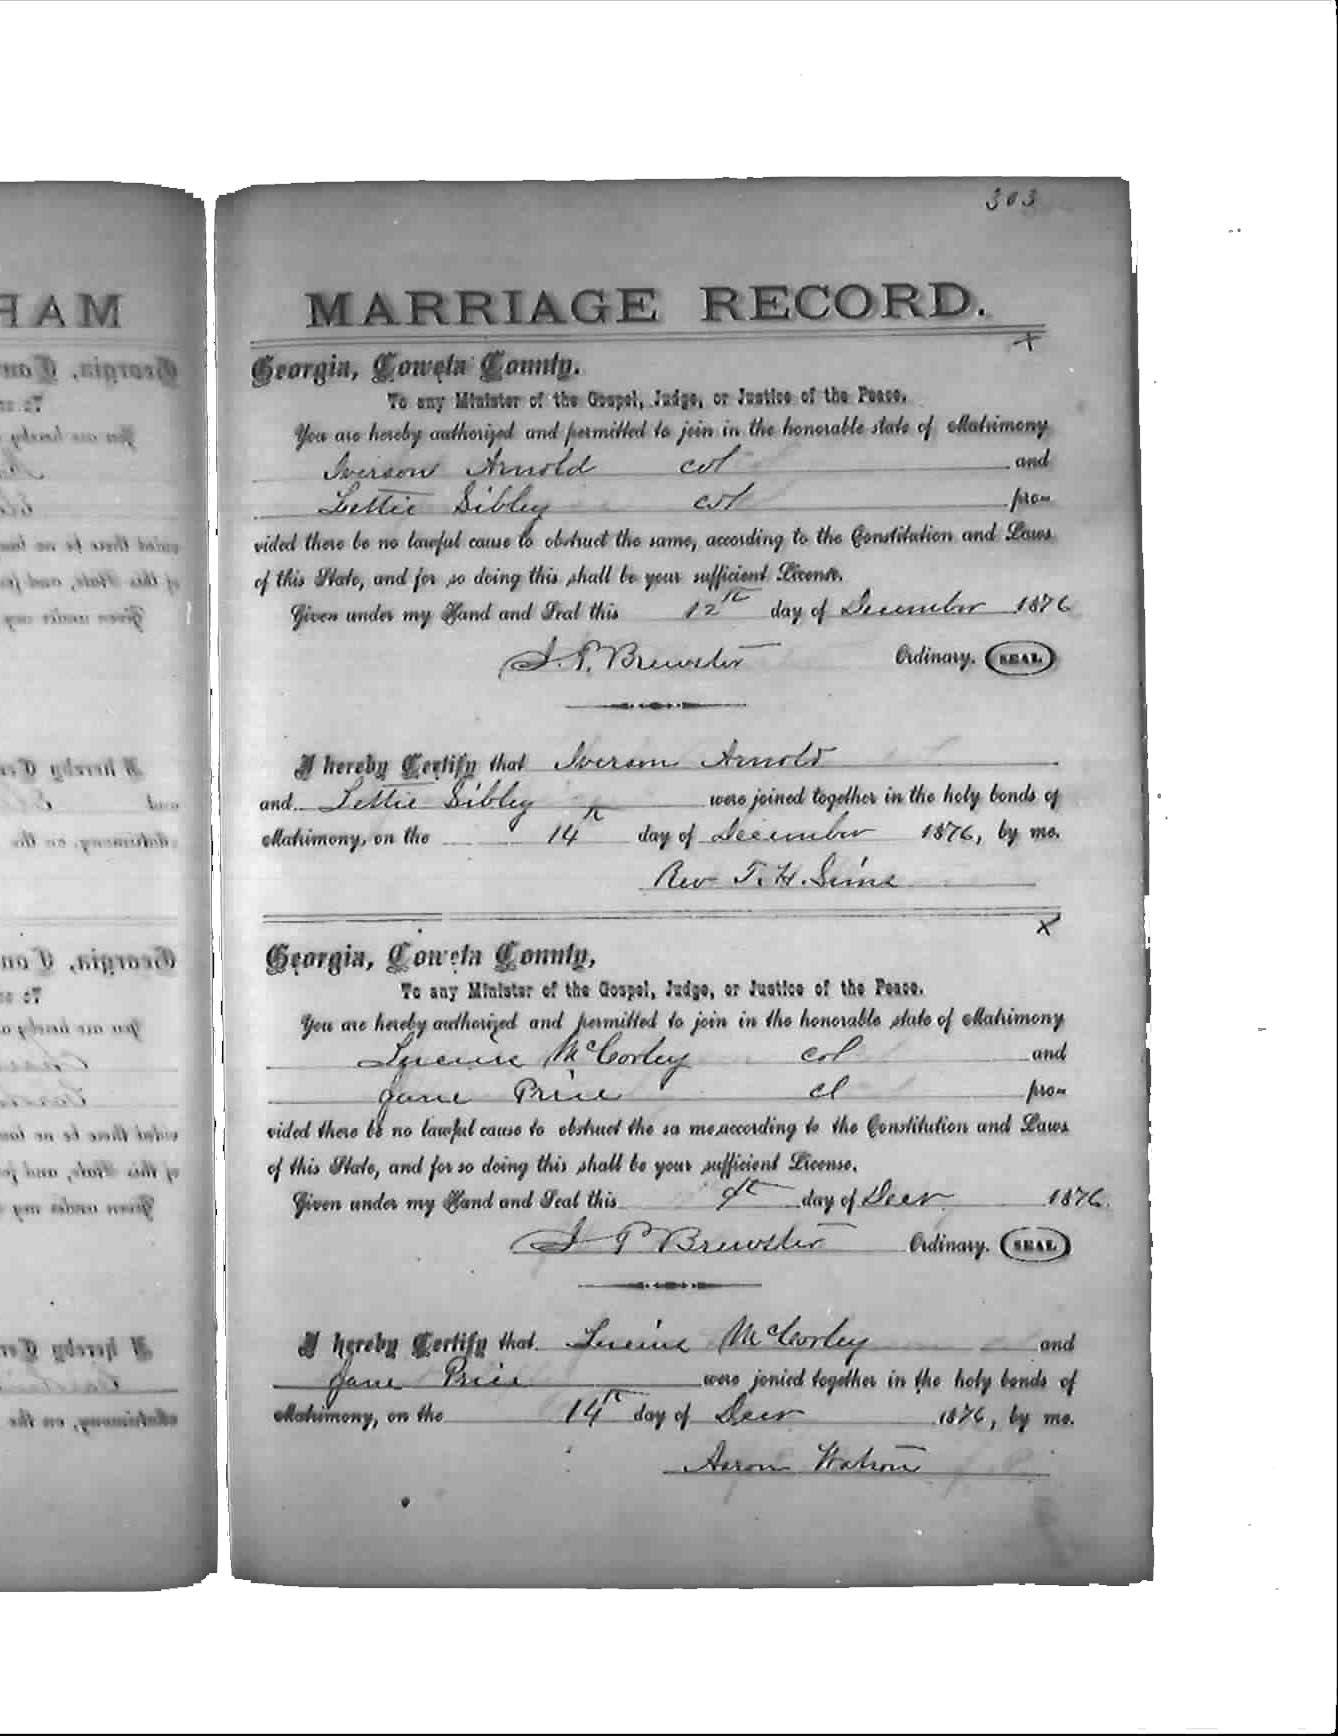 303
MARRIAGE RECORD.
x
Georgia, Coweta County.
To any Minister of the Gospel, Judge, or Justice of the Peace.
You are hereby authorized and permitted to join in the honorable state of Matrimony
Iverson Arnold col and
Lettie Sibley col pro-
vided there be no lawful cause to obstruct the same, according to the Constitution and Laws
of this State, and for so doing this shall be your sufficient License.
Given under my Hand and Seal this 12th day of December 1876
J. P. Brewster Ordinary. SEAL
I hereby Certify that Iverson Arnold
and Lettie Sibley were joined together in the holy bonds of
Matrimony, on the 14th day of December 1876, by me.
Rev T. H. Sims
x
Georgia, Coweta County,
To any Minister of the Gospel, Judge, or Justice of the Peace.
You are hereby authorized and permitted to join in the honorable state of Matrimony
Lucius McCorley col and
Jane Price cl pro-
vided there be no lawful cause to obstruct the sa me, according to the Constitution and Laws
of this State, and for so doing this shall be your sufficient License.
Given under my Hand and Seal this day of Decr 1876.
J P Brewster Ordinary. SEAL
I hereby Certify that Lucius McCorley and
Jane Price were jonied together in the holy bonds of
Matrimony, on the 14th day of Decr 1876, by me.
Aaron Watson